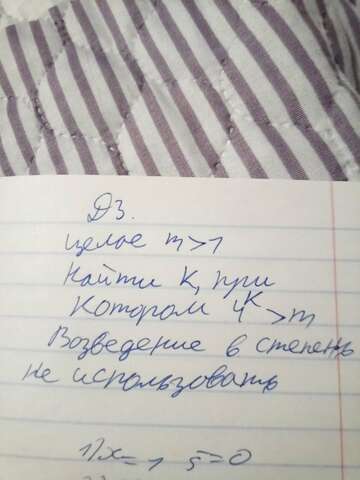 ДЗ.
целое m>1
Найти K, при
котором 4^K>m
Возведение в степень
не использовать
1) x=1 S=0